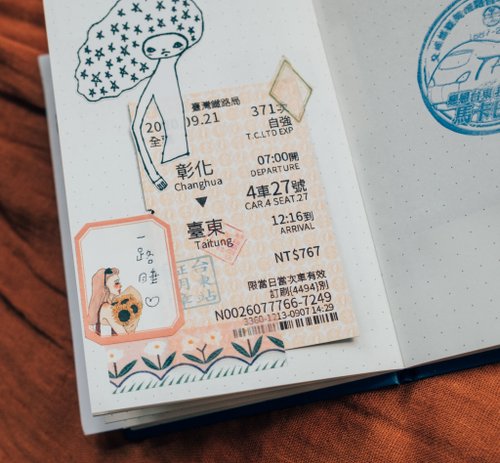 臺灣鐵路局
371次
09.21
自強
T.C.LTD EXP
彰化
Changhua
07:00開
DEPARTURE
4車27號
CAR.4 SEAT.27
臺東
Taitung
12:16到
ARRIVAL
NT$767
限當日當次車有效
訂刷(4494)別
N0026077766-7249
14:29
一路
睡
台東站